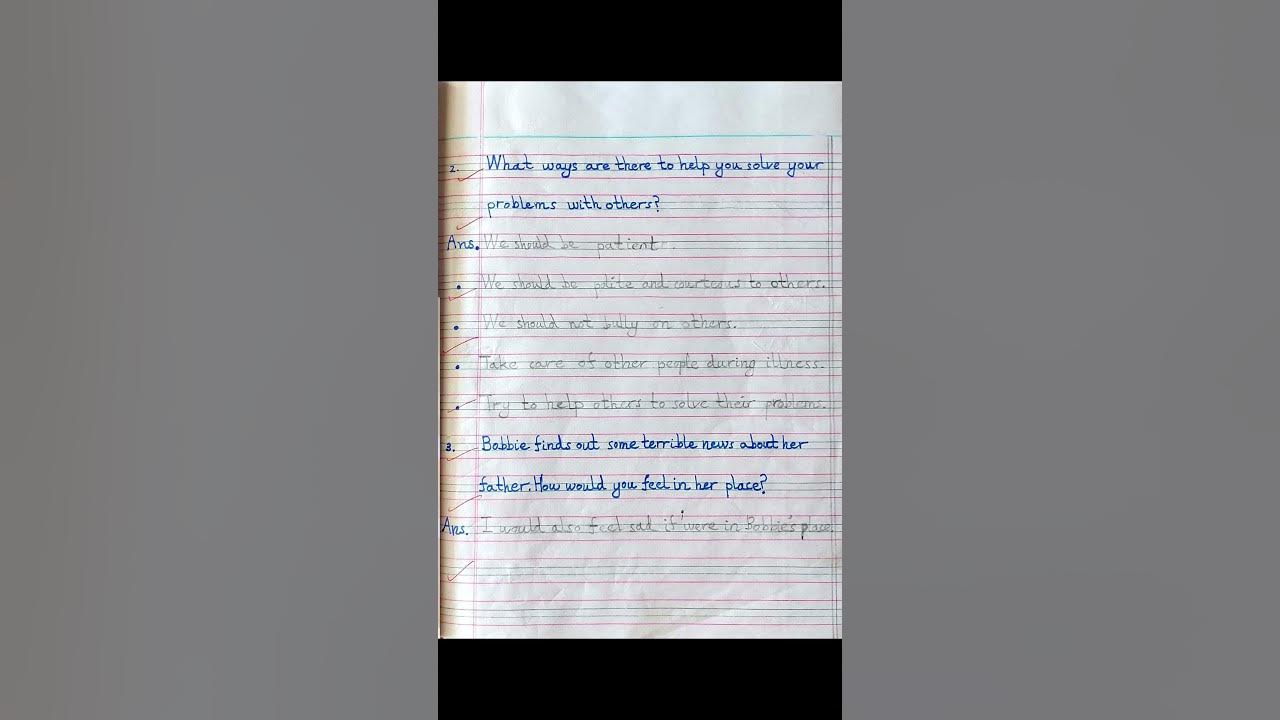 2. What ways are there to help you solve your
problems with others?
Ans. We should be patient.
• We should be polite and courteous to others.
• We should not bully on others.
• Take care of other people during illness.
• Try to help others to solve their problems.
3. Babbie finds out some terrible news about her
father. How would you feel in her place?
Ans. I would also feel sad if i were in Bobbie's place.